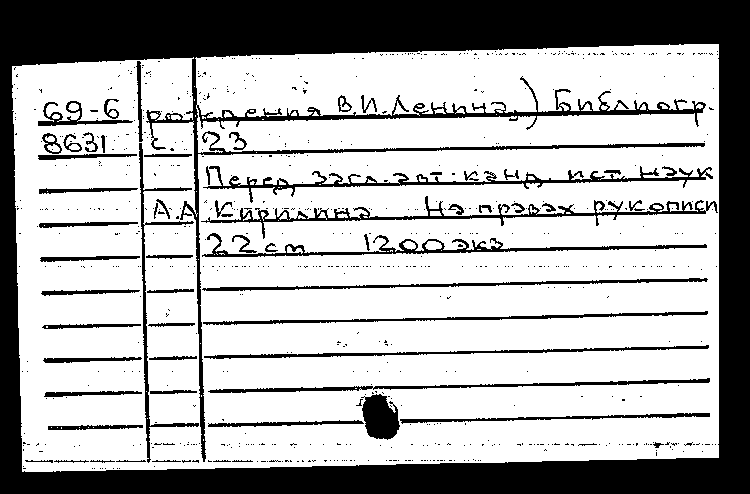 69-6 рождения В.И. Ленина.) Библиогр.
8631 с. 23
Перед загл. авт: канд. ист. наук
А.А Кирилина На правах рукописи
22 см 1200 экз